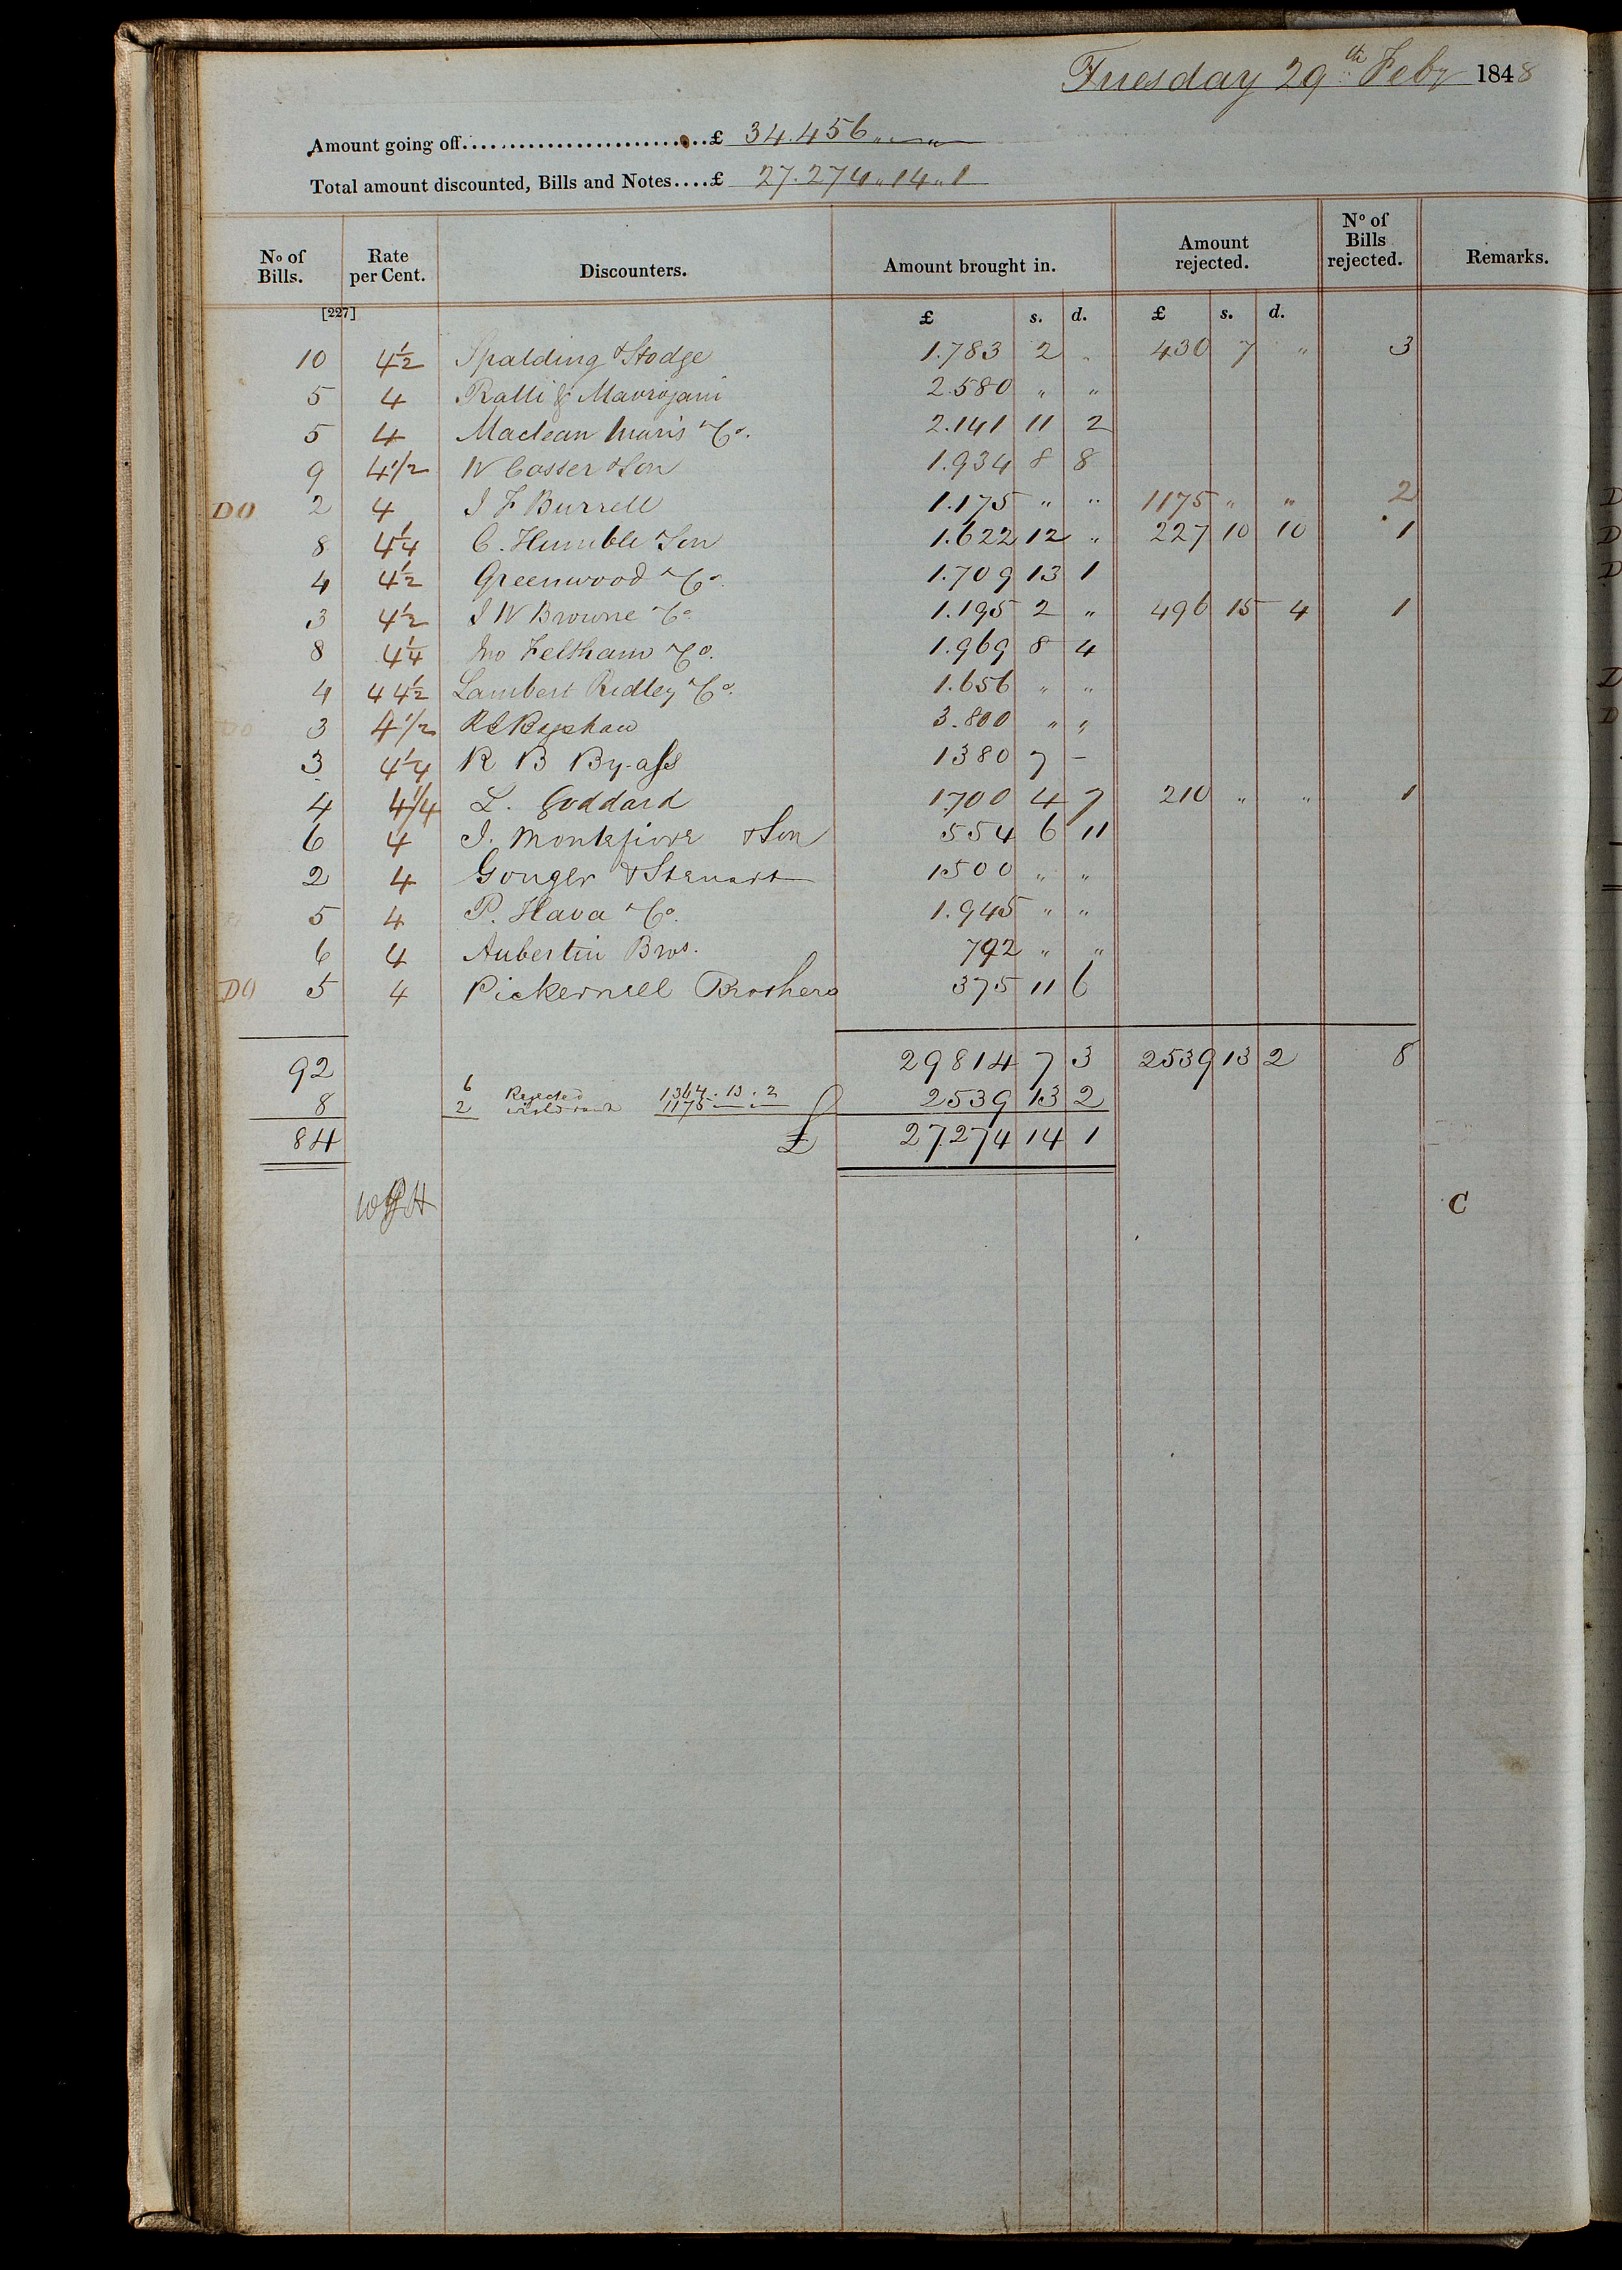 Tuesday 29th Feby 1848
Amount going off..........................£ 34.456 " — "
Total amount discounted, Bills and Notes....£ 27.274 " 14 " 1
No of Bills. Rate per Cent. Discounters. Amount brought in. Amount rejected. No of Bills rejected. Remarks.
[227] £ s. d. £ s. d.
10 4½ Spalding & Hodge 1.783 2 " 430 7 " 3
5 4 Ralli & Mavrojani 2.580 " "
5 4 Maclean Maris & Co. 2.141 11 2
9 4 1/2 W Cosser & Son 1.934 8 8
DO 2 4 J F Burrell 1.175 " " 1175 " " 2
8 4¼ C. Humble & Son 1.622 12 " 227 10 10 1
4 4½ Greenwood & Co. 1.709 13 1
3 4½ J W Browne & Co 1.195 2 " 496 15 4 1
8 4¼ Jno Feltham & Co. 1.969 8 4
4 4 4½ Lambert Ridley & Co. 1.656 " "
DO 3 4 1/2 3.800 " "
3 4¼ R B By-ass 1380 7 –
4 4 1/4 L. Goddard 1700 4 7 210 " " 1
6 4 J. Montefiore & Son 554 6 11
2 4 Gouger & Stewart 1500 " "
5 4 P. Hava & Co. 1.945 " "
6 4 Aubertin Bros. 792 " "
DO 5 4 Pickernell Brothers 375 11 6
92 29814 7 3 2539 13 2 8
8 6 Rejected 1364 . 13 . 2 2539 13 2
2 withdrawn 1175 — —
84 £ 27.274 14 1
WPH C